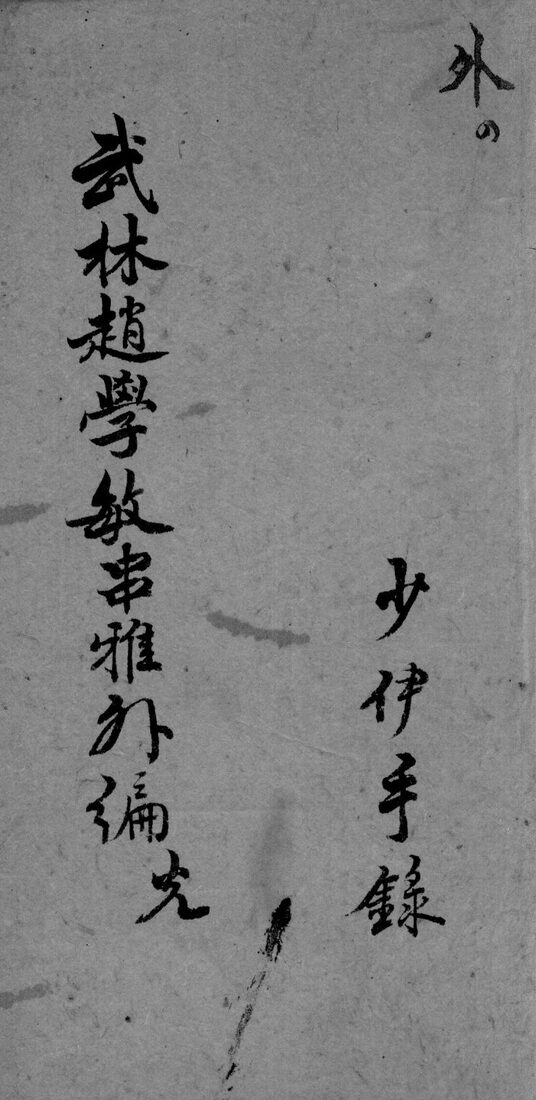 外の
少伊手錄
武林趙學敏串雅外編